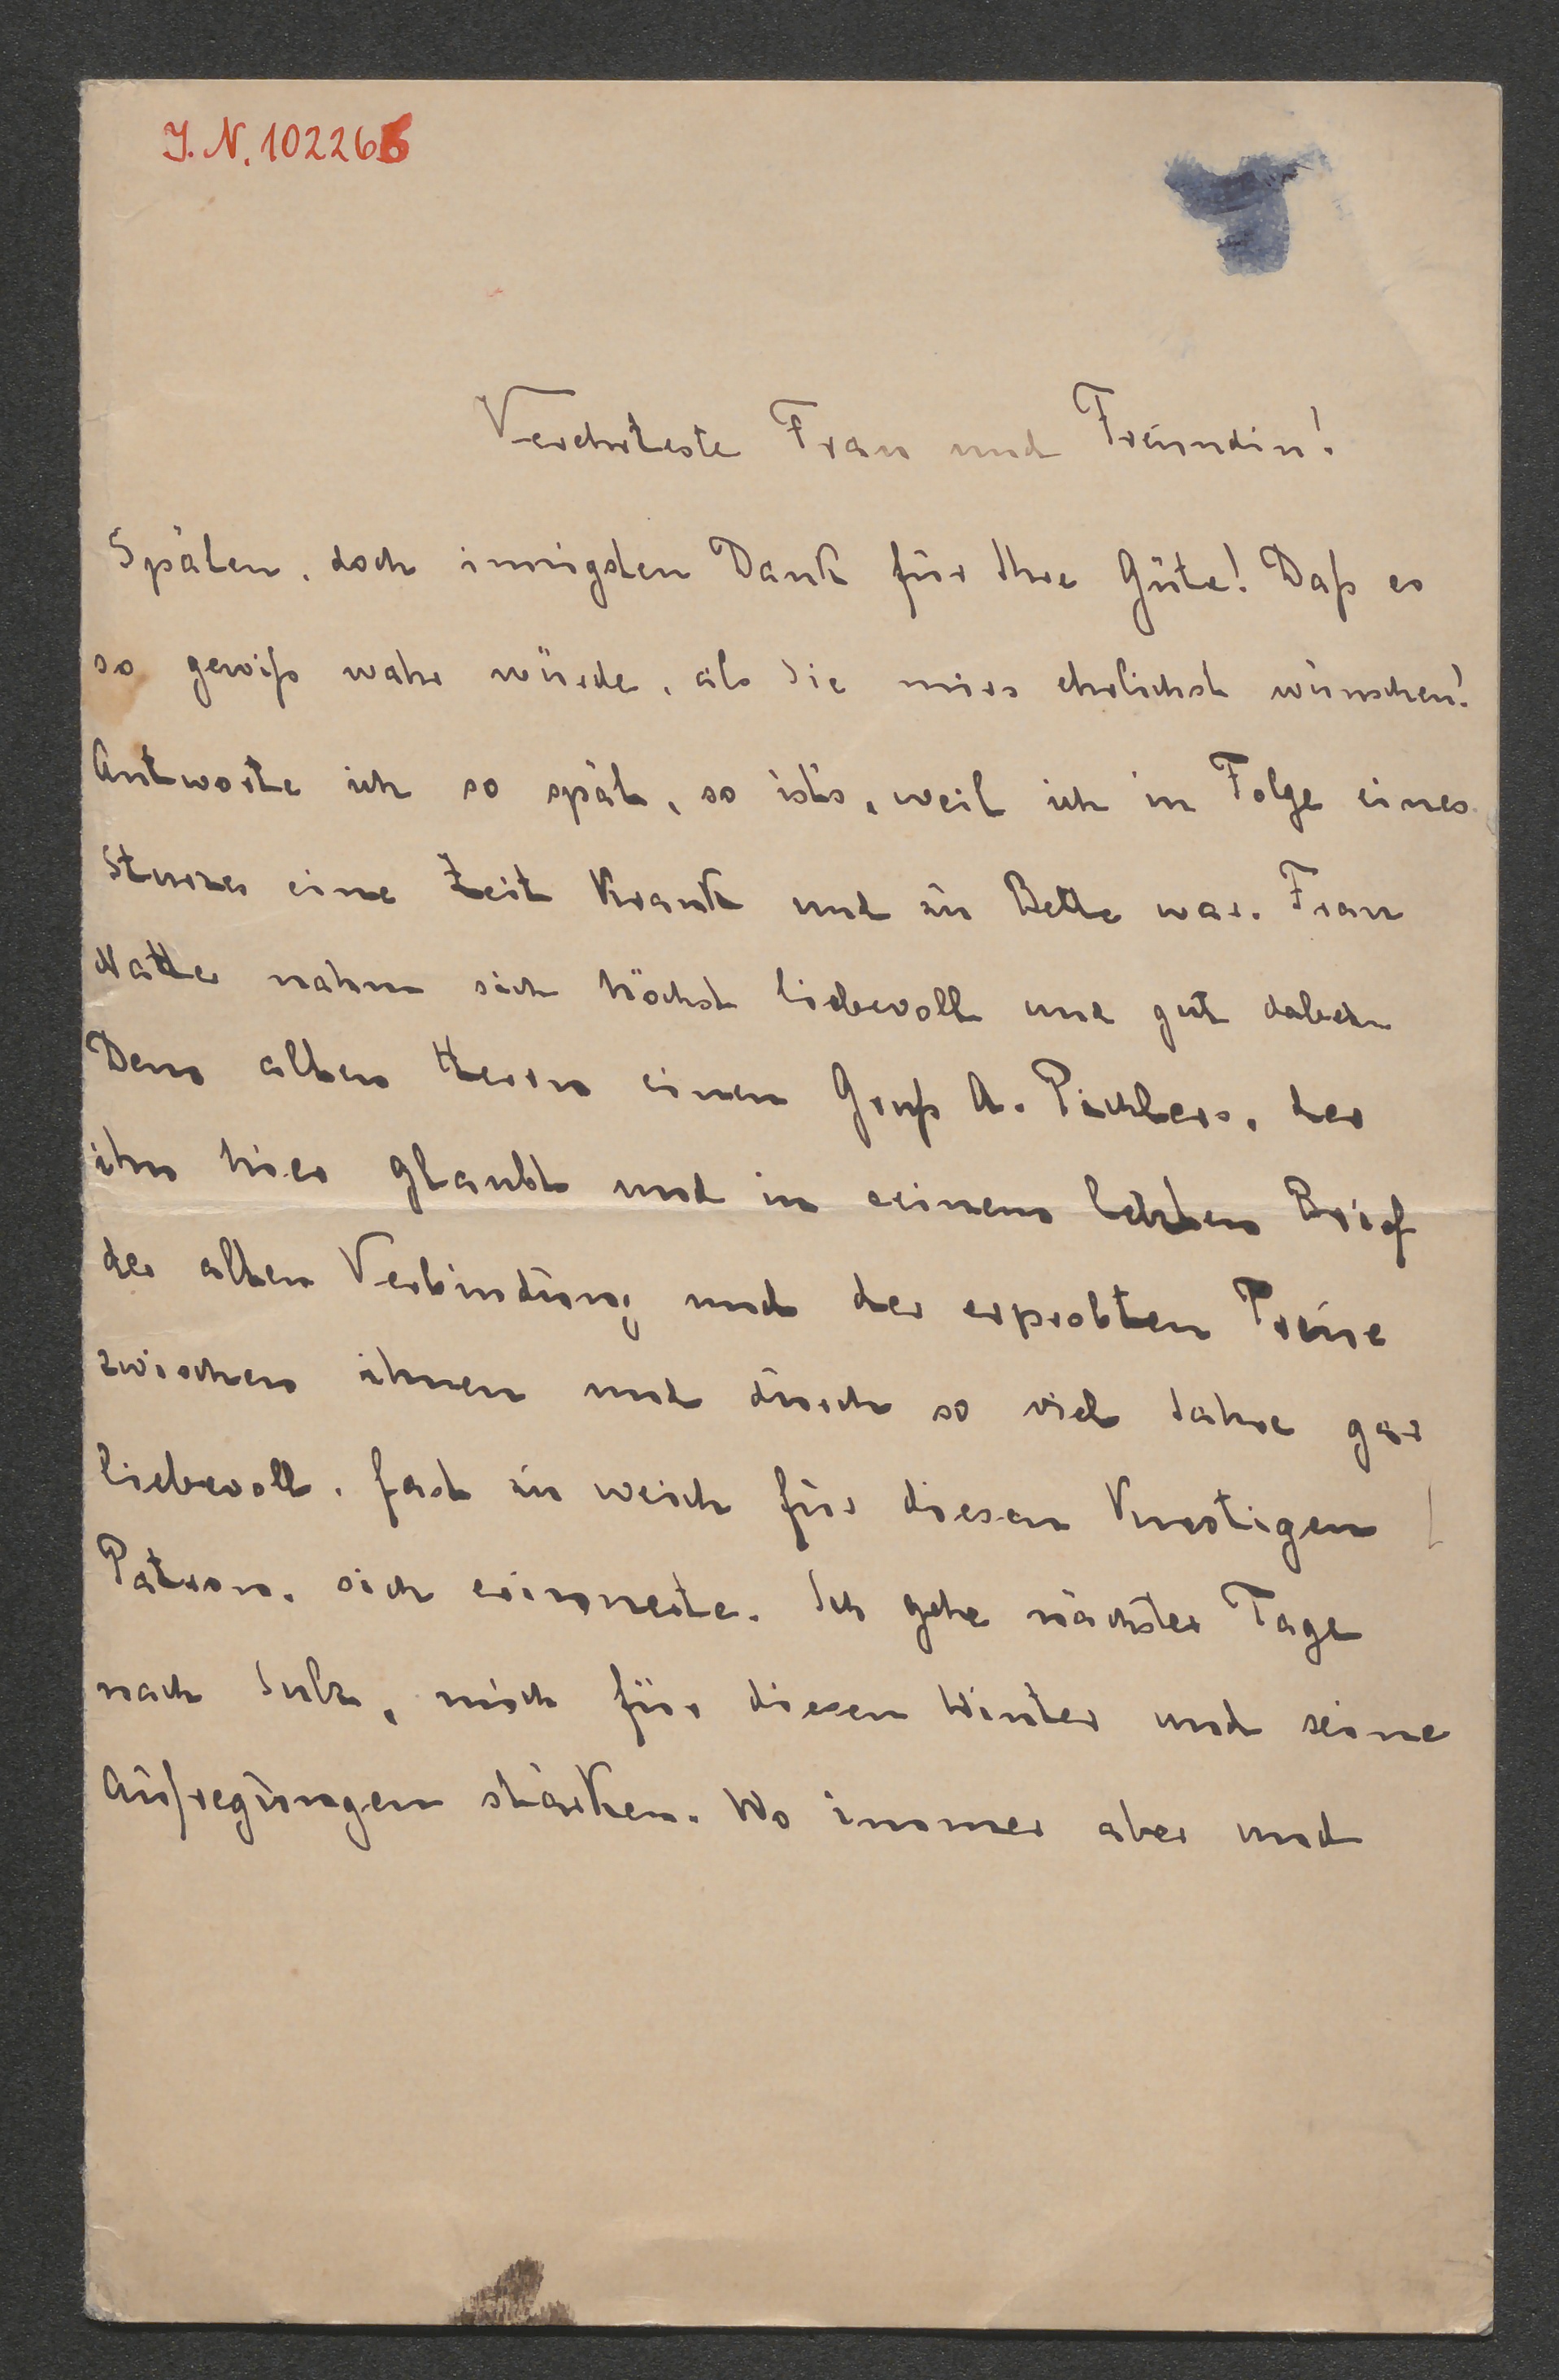 J. N. 102266
Verehrteste Frau und Freundin!
Späten, doch innigsten Dank für Ihre Güte! Daß es
so gewiß wahr würde, als Sie mirs ehrlichst wünschen!
Antworte ich so spät, so ists, weil ich in Folge eines
Sturzes eine Zeit krank und zu Bette war. Frau
Natter nahm sich höchst liebevoll und gut dabei.
Dem alten Herrn einen Gruß A. Pichlers, der
ihn hier glaubt und in seinem letzten Brief
der alten Verbindung und der erprobten Treue
zwischen ihnen und durch so viel Jahre gar
liebevoll, fast zu weich für diesen knustigen
Patron, sich erinnerte. Ich gehe nächster Tage
nach Sulz, mich für diesen Winter und seine
Aufregungen stärken. Wo immer aber und